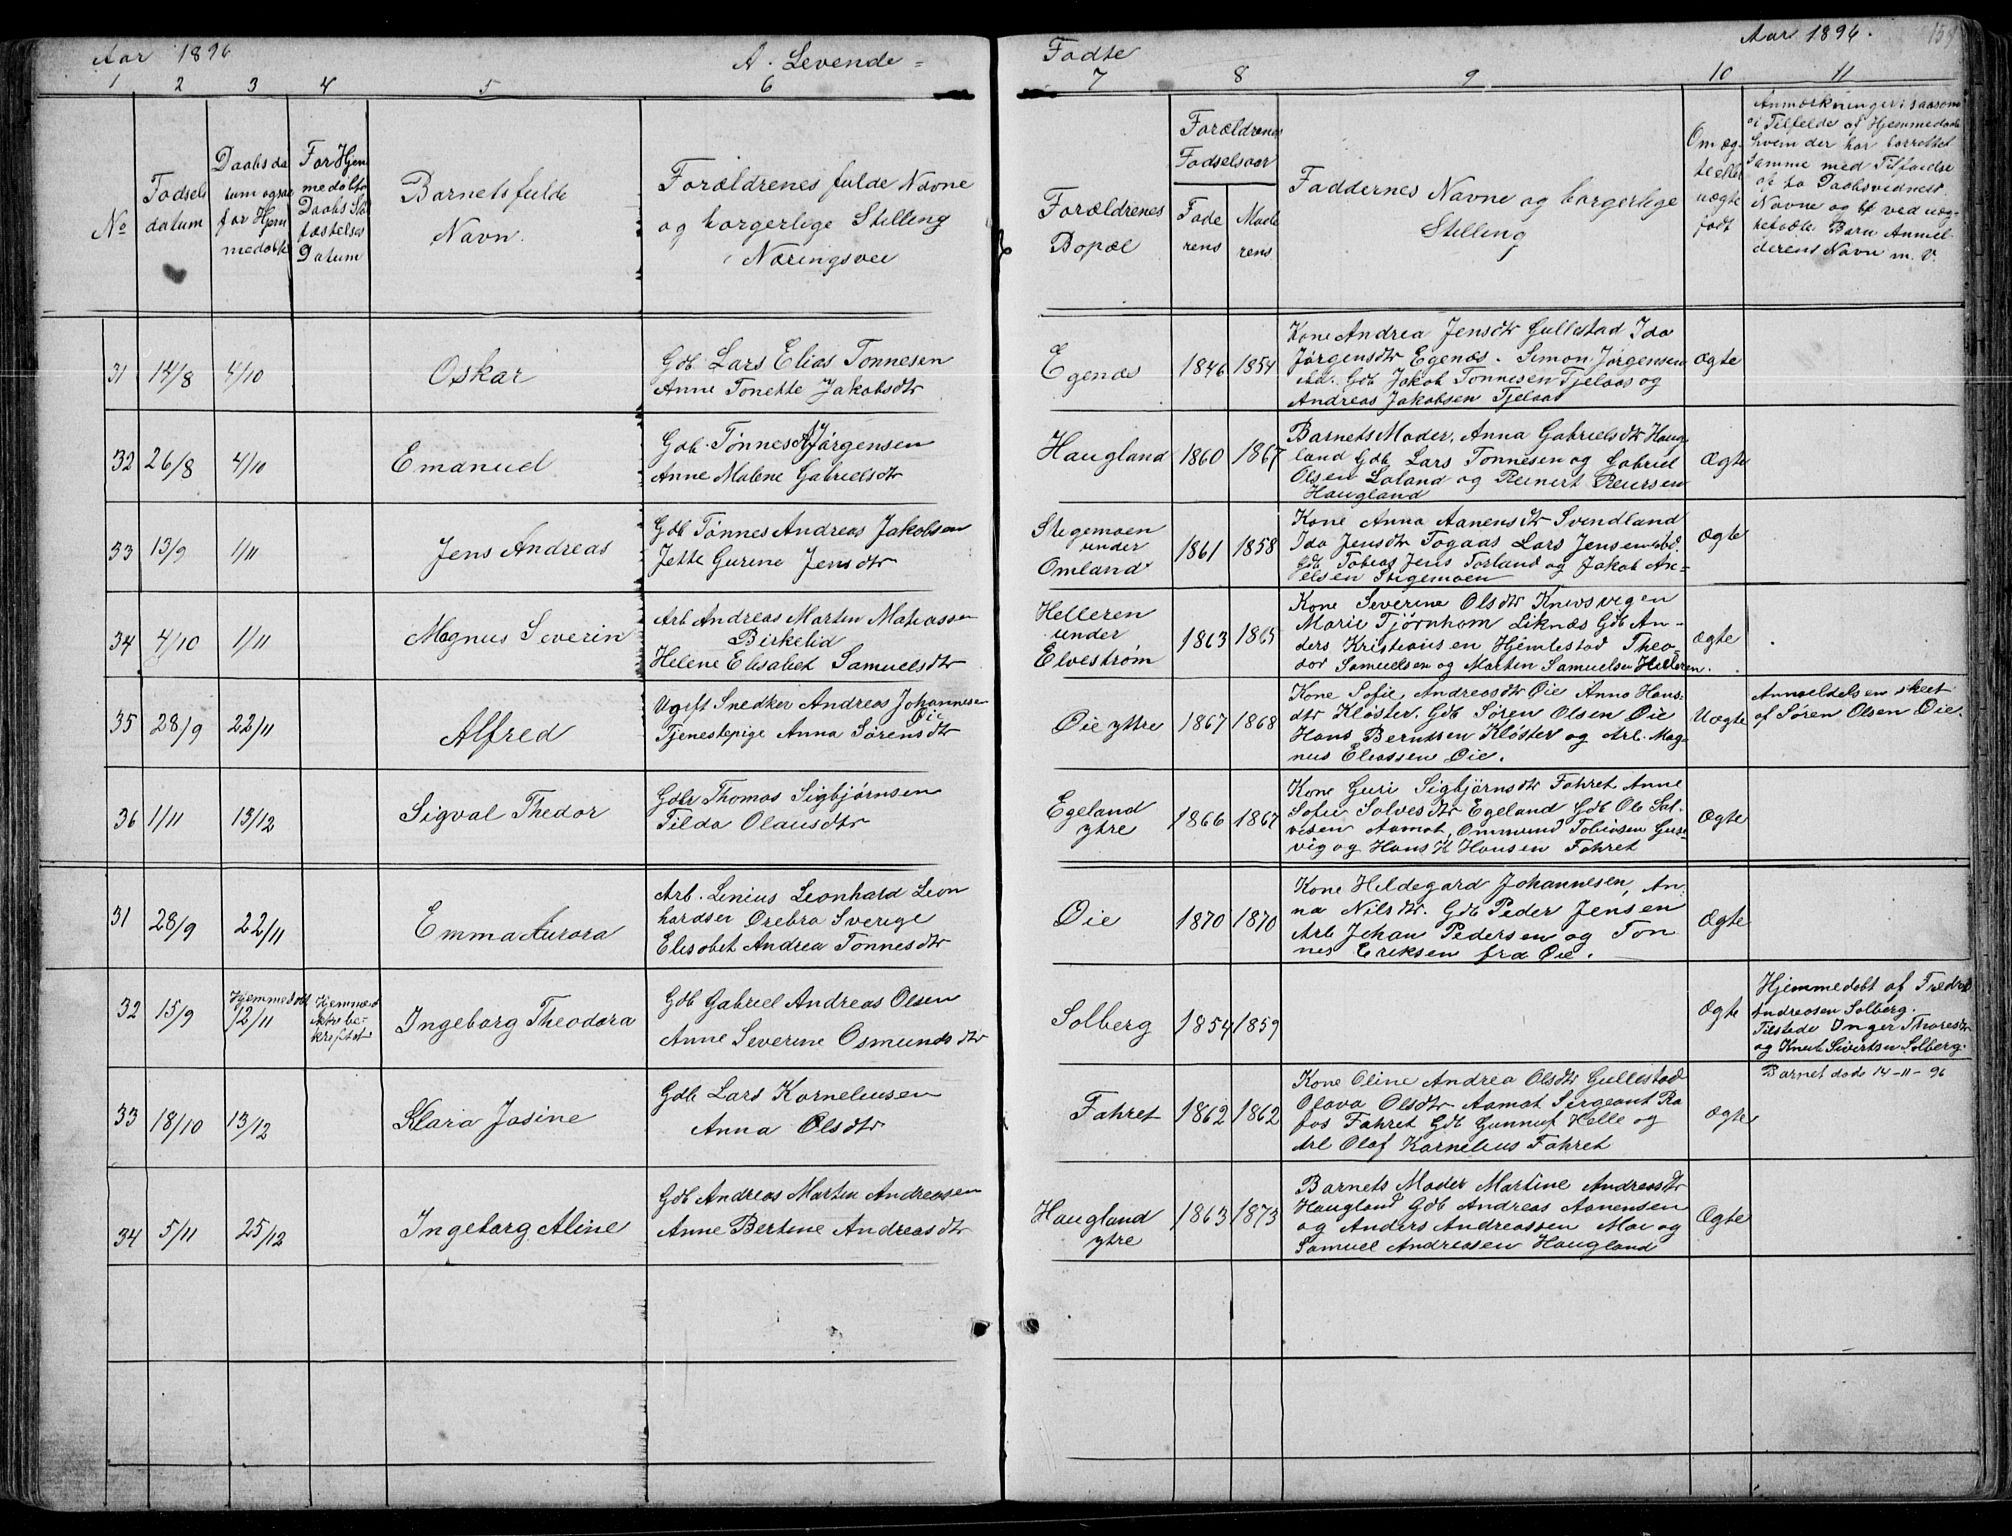 Aar 1896
A. Levende =
1 2 3 4 5 6
No
Fødsels
datum
Daabsda
tum ogsaa
for Hjem
medøbte
For Hjem
medøbte
Daabs Sta
fæstelses
Datum
Barnets fulde
Navn.
Forældrenes fulde Navne
og borgerlige Stilling
Næringsvei
31 14/8 4/10
Oskar
Gdb Lars Elias Tønnesen
Anne Tonette Jakobsdtr
32 26/8 4/10
Emanuel
Gdb. Tønnes A Jørgensen
Anne Malene Gabrielsdtr
33 13/9 1/11
Jens Andreas
Gdb Tønnes Andreas Jakobsen
Jette Gurine Jensdtr
34 4/10 1/11
Magnus Severin
Arb Andreas Martin Matiassen
Birkelid
Helene Elisabet Samuelsdtr
35 28/9 22/11
Alfred
Ugift Snedker Andreas Johannesen
Øie
Tjenestepige Anna Sørensdtr
36 1/11 13/12
Sigval Thedor
Gdb Thomas Sigbjørnsen
Tilda Olausdtr
31 28/9 22/11
Emma Aurora
Arb. Lenius Leonhard Leon
hardsen Ørebro Sverige
Elisabet Andrea Tønnesdtr
32 15/9
Hjemmedøbt
12/11
Hjemmed
ikke be-
kræftet
Ingeborg Theodora
Gdb Gabriel Andreas Olsen
Anne Severine Osmundsdtr
33 18/10 13/12
Klara Josine
Gdb Lars Korneliusen
Anna Olsdtr
34 5/11 25/12
Ingeborg Aline
Gdb Andreas Martin Andreasen
Anne Bertine Andreasdtr
Fødte
Aar 1896.
159
7 8 9 10 11
Forældrenes
Bopæl
Forældrenes
Fødselsaar
Fade
rens
Mode
rens
Faddernes Navne og borgerlige
Stilling
Om æg-
te eller
uægte
født
Anmærkninger saasom
i Tilfælde af Hjemmedaab
hvem der har forrettet
samme med Tilføielse
af to Daabsvidners
Navne og ved uæg-
tefødte Børn Anmel-
derens Navn m. v.
Egenæs 1846 1854
Kone Andrea Jensdtr Gullestad Ida
Jørgensdtr Egenæs. Simon Jørgensen
ibd. Gdb Jakob Tønnesen Fjelaas og
Andreas Jakobsen Fjelaas
Ægte
Haugland 1860 1867
Barnets Moder, Anna Gabrielsdtr Haug
land Gdb Lars Tønnesen og Gabriel
Olsen Loland og Reinert Reiersen
Haugland
Ægte
Stegemoen
under
Omland
1861 1858
Kone Anna Aanensdtr Svindland
Ida Jensdtr Fogaas Lars Jensen ibd.
Gdb Tobias Jens Torland og Jakob An-
elsen Stigemoen
Ægte
Helleren
under
Elvestrøm
1863 1865
Kone Severine Olsdtr Knivsvigen
Marie Tjørnhom Liknæs Gdb An-
ders Kristiansen Hjemlestad Theo-
dor Samuelsen og Martin Samuelsen Helleren.
Ægte
Øie ytre 1867 1868
Kone Sofie Andreasdtr Øie Anna Hans-
dtr Kloster. Gdb Søren Olsen Øie
Hans Berntsen Kloster og Arb. Mag-
nus Eliassen Øie.
Uægte
Anmeldelsen skeet
af Søren Olsen Øie.
Egeland
ytre
1866 1867
Kone Guri Sigbjørnsdtr Fahret Anne
Sofie Salvesdtr Egeland Gdb Ole Sal-
vesen Aamot, Ommund Tobiasen Guse
vig og Hans K Hansen Fahret
Ægte
Øie 1870 1870
Kone Hildegard Johannesen, An-
na Nilsdtr. Gdb Peder Jensen
Arb Johan Pedersen og Tøn
nes Eriksen fra Øie.
Ægte
Solberg 1854 1859
Ægte
Hjemmedøbt af Fredrik
Andreasen Solberg.
Tilstede Inger Thoresdtr
og Knut Sivertsen Solberg.
Barnet døde 14-11-96
Fahret 1862 1862
Kone Oline Andrea Olsdtr Gullestad
Olava Olsdtr Aamot Sergeant Ra
fos Fahret Gdb Gunnuf Helle og
Arb Olaf Kornelius Fahret
Ægte
Haugland
ytre
1863 1873
Barnets Moder Martine Andreasdtr
Haugland Gdb Andreas Aanensen
og Anders Andreassen Moi og
Samuel Andreasen Haugland
Ægte